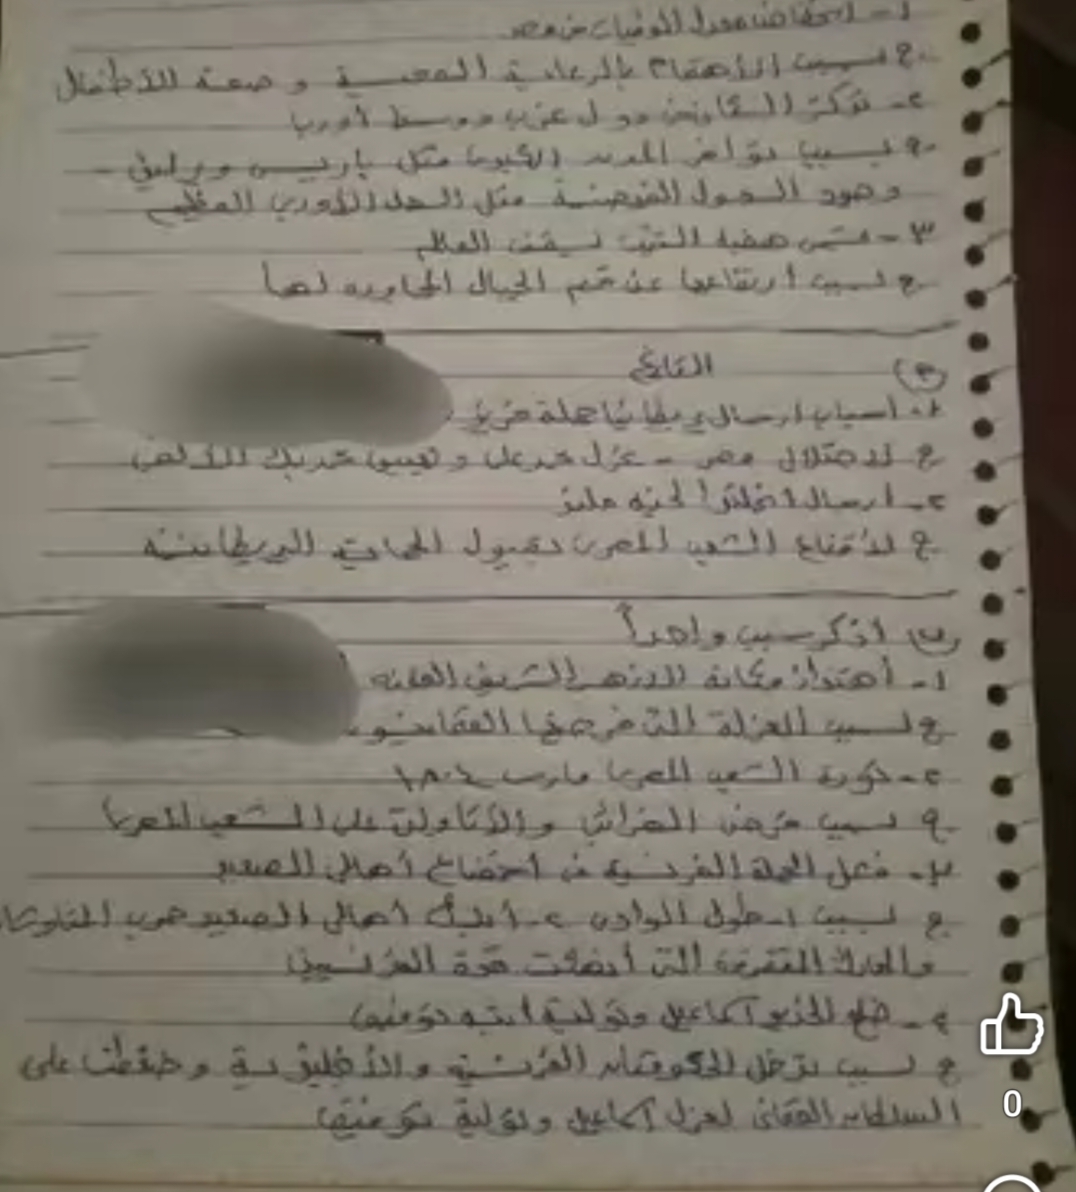 ١- انخفاض معدل الوفيات في مصر
ج لسبب الأهتمام بالرعاية الصحية و صحة للأطفال
٢- تركز السكان في دول غرب ووسط أوربا
ج لسبب توافر المدن الكبرى مثل باريس وبرلين -
وجود السهول الفيضية مثل السهل الأوربي العظيم
٣- تسمى هضبة التبت بسقف العالم
ج لسبب ارتفاعها عن قمم الجبال المجاوره لها
التاريخ
١- أسباب ارسال بريطانيا حملة فريزر
ج لاحتلال مصر - عزل محمد على و تعيين محمد بك الألفى
٢- أرسال انجلترا لجنه ملنر
ج لأقناع الشعب المصرى بقبول الحماية البريطانيه
ب) اذكر سبب واحداً
١- أهتزاز مكانة الأزهر الشريف
ج لسبب العزلة التى فرضها العثمانيون
٢- ثورة الشعب المصرى مارس ١٨٠٤
ج لسبب فرض الضرائب والأتاوات على الشعب المصرى
٣- فشل الحملة الفرنسية فى أخضاع أهالى الصعيد
ج لسبب ١- طول الوادى ٢- أهالى الصعيد حرب
التى أنهكت قوة الفرنسيين
٤- خلع الخديو اسماعيل وتولية ابنه توفيق
ج لسبب تدخل الحكومتان الفرنسية والأنجليزية وضغطت على
السلطان العثمانى لعزل اسماعيل وتولية توفيق
0